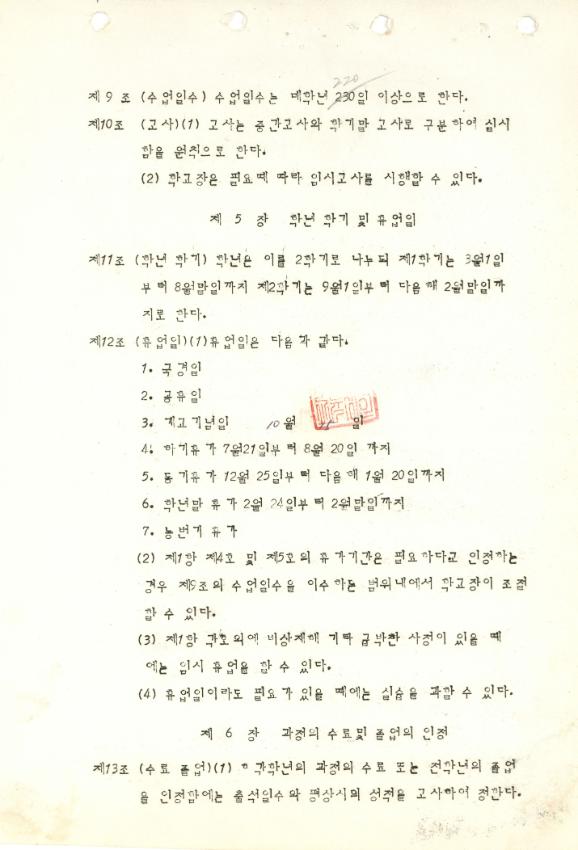 220
제9조 (수업일수) 수업일수는 매학년 230일 이상으로 한다.
제10조 (고사)(1) 고사는 중간고사와 학기말 고사로 구분하여 실시
함을 원칙으로 한다.
(2) 학교장은 필요때 따라 임시고사를 시행할 수 있다.
제 5 장 학년 학기 및 휴업일
제11조 (학년 학기) 학년은 이를 2학기로 나누되 제1학기는 3월1일
부터 8월말일까지 제2학기는 9월1일부터 다음해 2월말일까
지로 한다.
제12조 (휴업일)(1)휴업일은 다음과 같다.
1. 국경일
2. 공휴일
3. 개교기념일 10월 일
4. 하기휴가 7월21일부터 8월 20일 까지
5. 동기휴가 12월 25일부터 다음해 1월 20일까지
6. 학년말 휴가 2월 24일부터 2월말일까지
7. 농번기 휴가
(2) 제1항 제4호 및 제5호의 휴가기간은 필요하다고 인정하는
경우 제9조의 수업일수을 이수하는 범위내에서 학교장이 조절
할 수 있다.
(3) 제1항 각호외에 비상재해 기타 급박한 사정이 있을 때
에는 임시 휴업을 할 수 있다.
(4) 휴업일이라도 필요가 있을 때에는 실습을 과할 수 있다.
제 6 장 과정의 수료및 졸업의 인정
제13조 (수료 졸업)(1) 각학년의 과정의 수료 또는 전학년의 졸업
을 인정함에는 출석일수와 평상시의 성적을 고사하여 정한다.